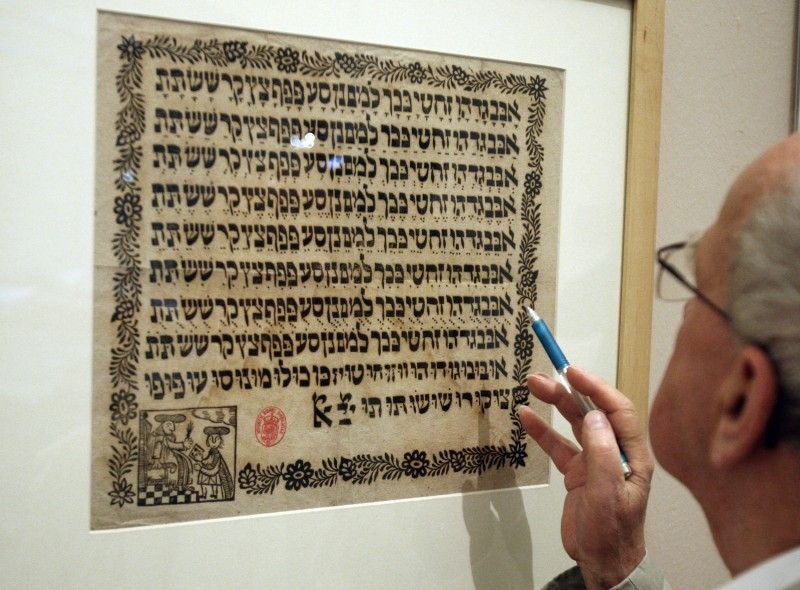 אבבגדהוזחטי ככך למםנןסע פפףצץקר ששתת
אבבגדהוזחטי ככך למםנןסע פפףצץקר ששתת
אבבגדהוזחטי ככך למםנןסע פפףצץקר ששתת
אבבגדהוזחטי ככך למםנןסע פפףצץקר ששתת
אבבגדהוזחטי ככך למםנןסע פפףצץקר ששתת
אבבגדהוזחטי ככך למםנןסע פפףצץקר ששתת
אבבגדהוזחטי ככך למםנןסע פפףצץקר ששתת
אבבגדהוזחטי ככך למםנןסע פפףצץקר ששתת
אובובוגודוהווווזוחוטויוכוכולומונוסועופופו
צוקורושושותותו